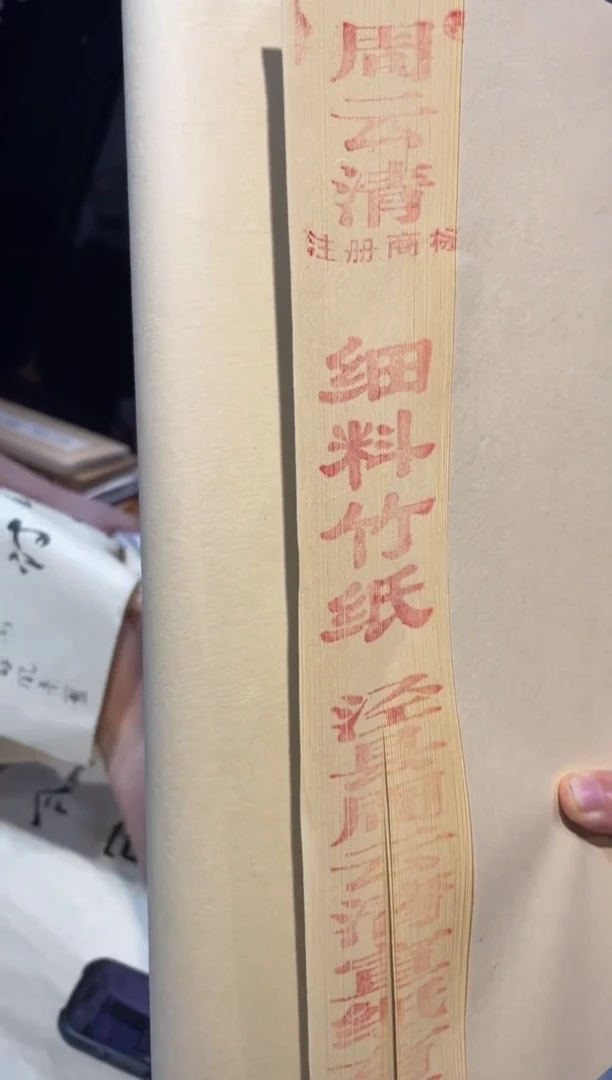 周云清
注册商标
细料竹纸
泾县周云清宣纸